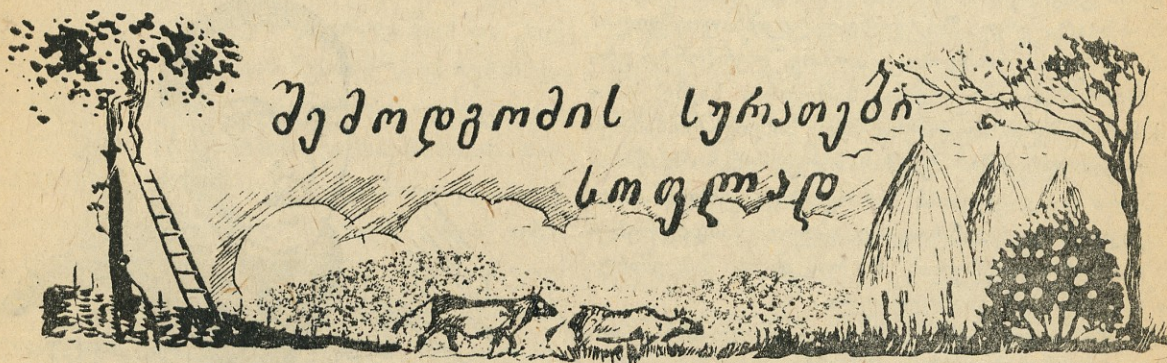 შემოდგომის სურათები
სოფლად